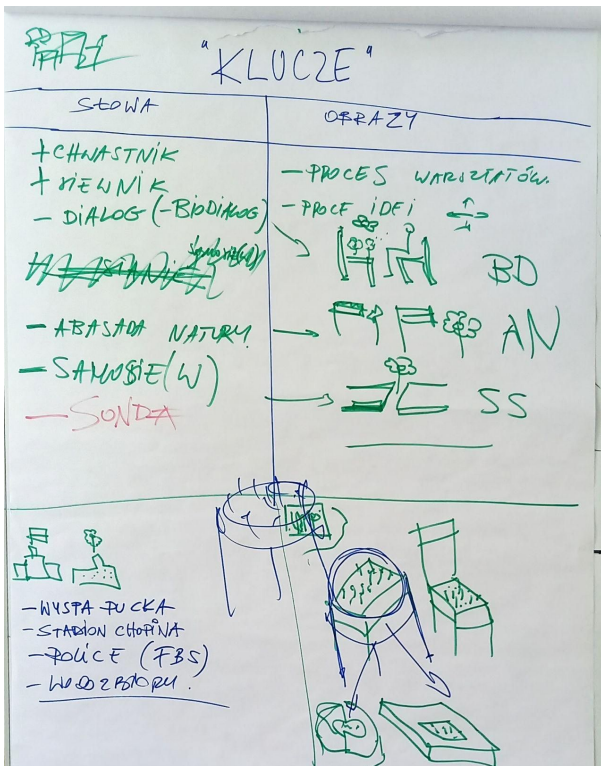 "KLUCZE"
SŁOWA
OBRAZY
+ CHWASTNIK
+ SIEWNIK
- DIALOG (-BIODIALOG)
- ABASADA NATURY
- SAMOSIE(W)
- SONDA
- PROCES WARSZTATÓW.
- PROCE IDEI
BD
AN
SS
- WYSPA PUCKA
- STADION CHOPINA
- POLICE (FBS)
- WODOZBIORY.